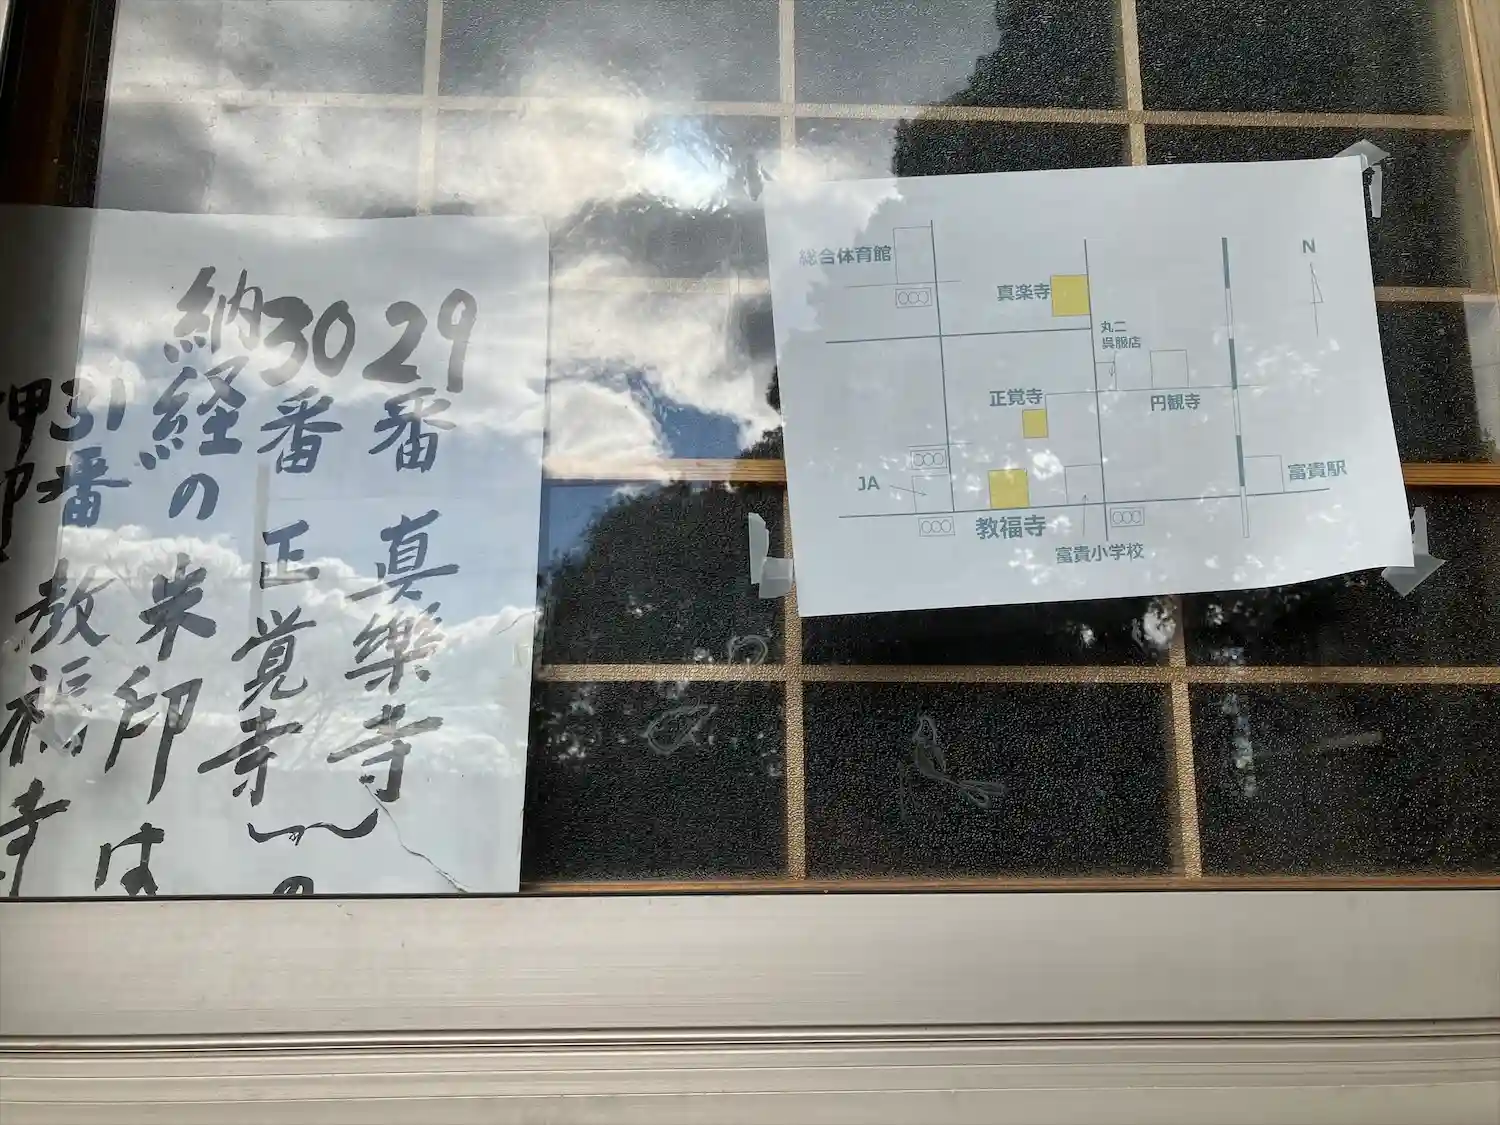 29番 真樂寺
30番 正覚寺
の
納経の 朱印は
31番 教福寺
押印
総合体育館
真楽寺
N
丸二
呉服店
正覚寺
円観寺
JA
富貴駅
教福寺
富貴小学校